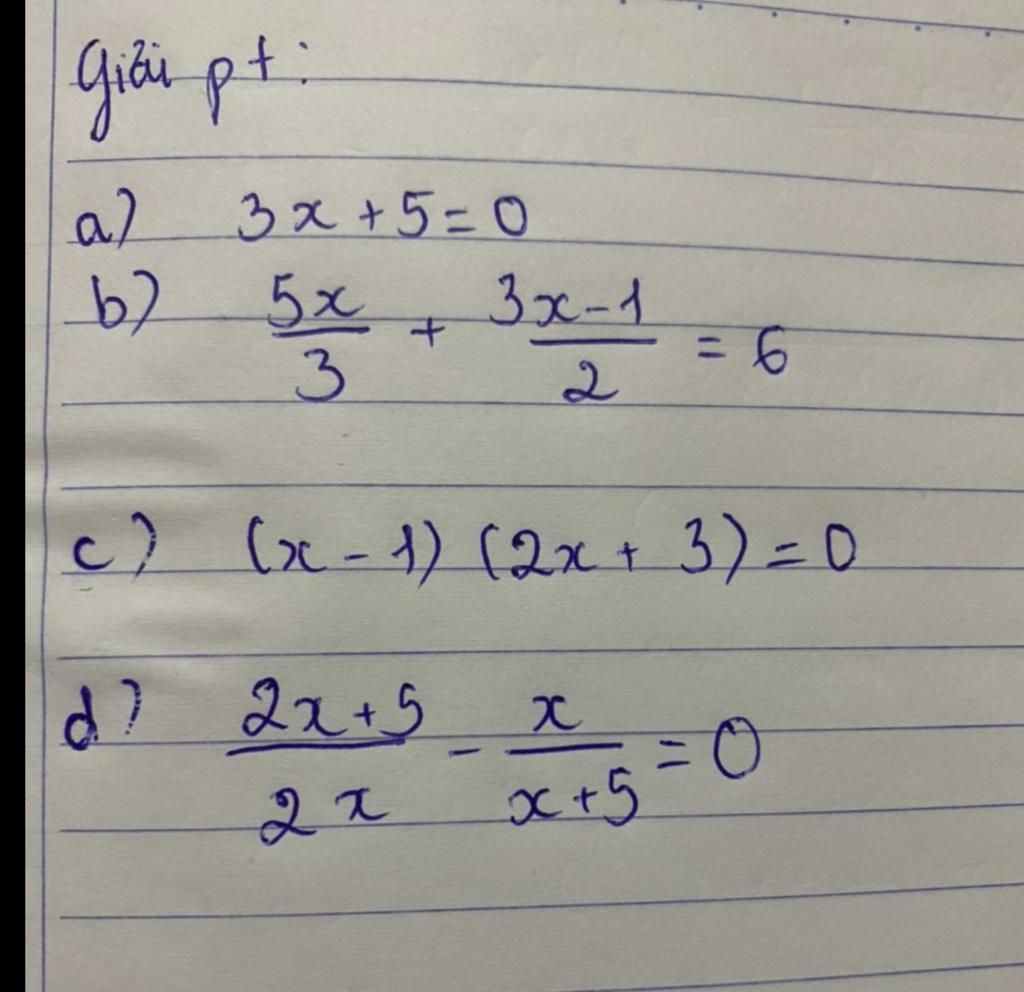 Giải pt:
a) 3x + 5 = 0
b) \frac{5x}{3} + \frac{3x-1}{2} = 6
c) (x - 1) (2x + 3) = 0
d) \frac{2x+5}{2x} - \frac{x}{x+5} = 0